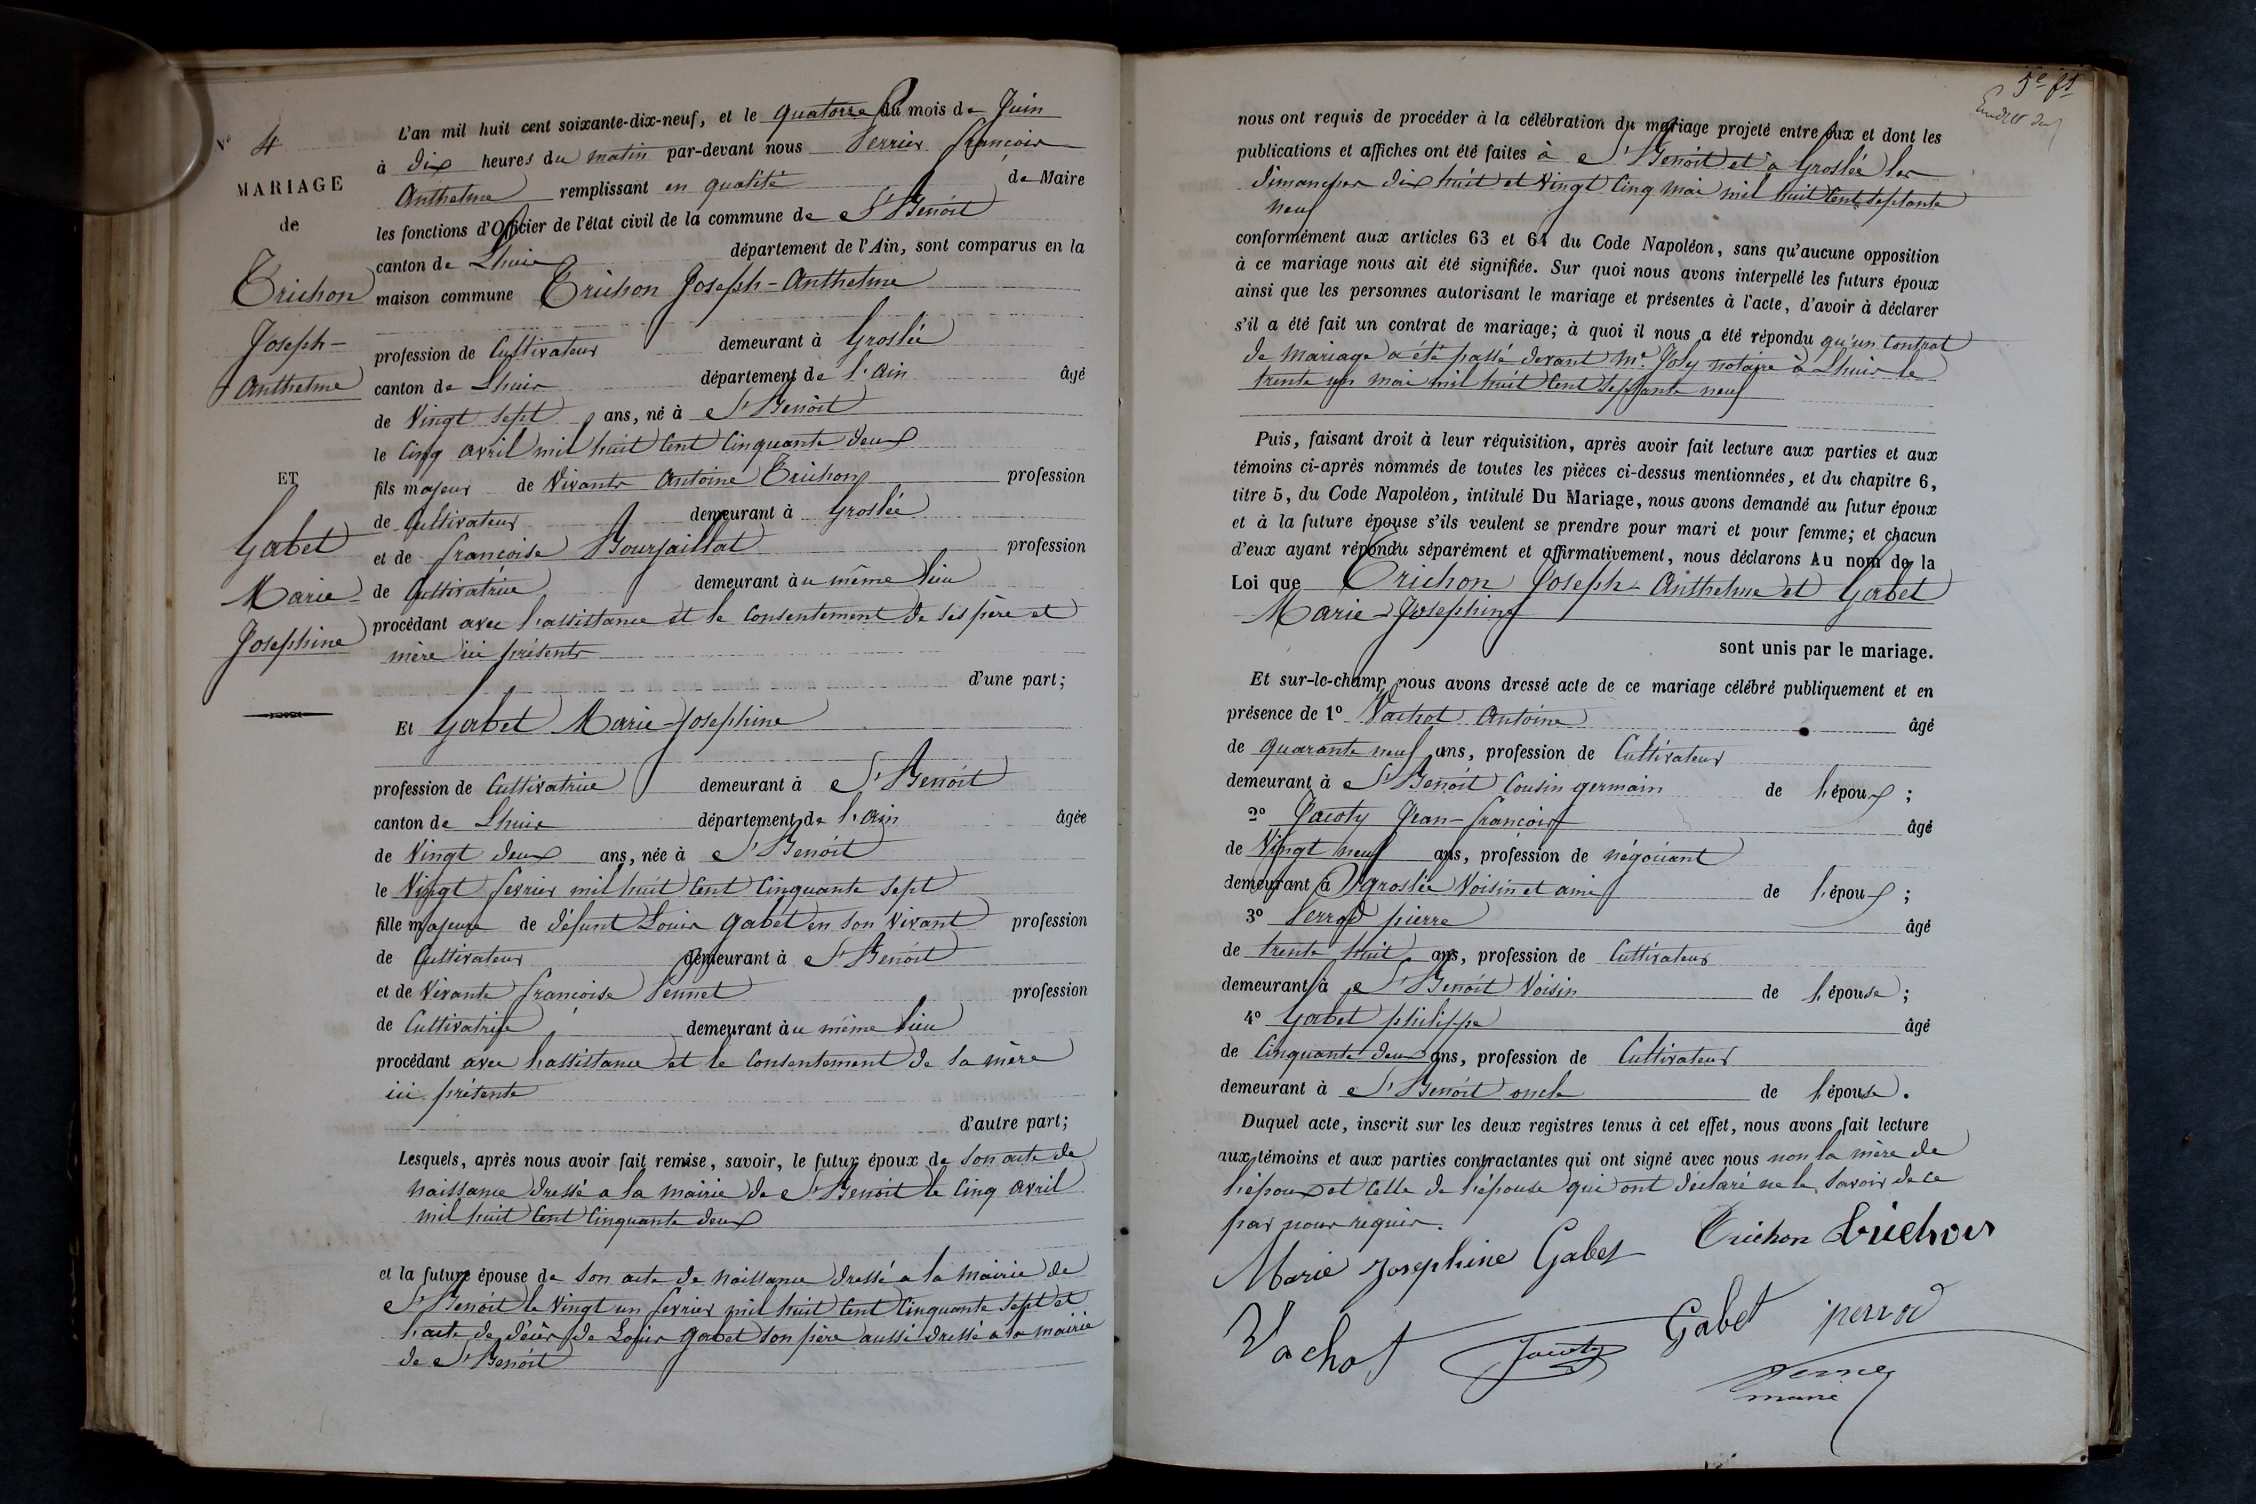 N° 4
MARIAGE
de
Trichon
Joseph-
Anthelme
ET
Gabet
Marie-
Josephine
L'an mil huit cent soixante-dix-neuf, et le quatorze du mois de Juin
à dix heures du matin par-devant nous Perrier François
Anthelme remplissant en qualité de Maire
les fonctions d'Officier de l'état civil de la commune de St Benoît
canton de Lhuis département de l'Ain, sont comparus en la
maison commune Trichon Joseph-Anthelme
profession de Cultivateur demeurant à Groslée
canton de Lhuis département de l'Ain âgé
de Vingt sept ans, né à St Benoît
le Cinq avril mil huit Cent Cinquante deux
fils majeur de Vivants Antoine Trichon profession
de Cultivateur demeurant à Groslée
et de françoise Bourjaillat profession
de Cultivatrice demeurant àu même lieu
procédant avec l'assistance et le Consentement de ses père et
mère ici présents
d'une part;
Et Gabet Marie-Josephine
profession de Cultivatrice demeurant à St Benoît
canton de Lhuis département de l'Ain âgée
de Vingt deux ans, née à St Benoît
le Vingt fevrier mil huit Cent Cinquante sept
fille majeure de défunt Louis Gabet en son vivant profession
de Cultivateur demeurant à St Benoît
et de Vivante françoise Pennet profession
de Cultivatrice demeurant àu même lieu
procédant avec l'assistance et le Consentement de sa mère
ici présente
d'autre part;
Lesquels, après nous avoir fait remise, savoir, le futur époux de son acte de
naissance dressé a la mairie de St Benoît le Cinq avril
mil huit Cent Cinquante deux
et la future épouse de son acte de naissance dressé a la mairie de
St Benoît le Vingt un fevrier mil huit Cent Cinquante sept et
l'acte de décès de Louis Gabet son père aussi dressé a la mairie
de St Benoît
5e ft
nous ont requis de procéder à la célébration du mariage projeté entre eux et dont les
publications et affiches ont été faites à St Benoît et à Groslée les
dimanches dix huit et Vingt Cinq mai mil huit Cent septante
neuf
conformément aux articles 63 et 64 du Code Napoléon, sans qu'aucune opposition
à ce mariage nous ait été signifiée. Sur quoi nous avons interpellé les futurs époux
ainsi que les personnes autorisant le mariage et présentes à l'acte, d'avoir à déclarer
s'il a été fait un contrat de mariage; à quoi il nous a été répondu qu'un Contrat
de mariage a été passé devant Me Joly notaire à Lhuis le
trente un mai mil huit Cent septante neuf
Puis, faisant droit à leur réquisition, après avoir fait lecture aux parties et aux
témoins ci-après nommés de toutes les pièces ci-dessus mentionnées, et du chapitre 6,
titre 5, du Code Napoléon, intitulé Du Mariage, nous avons demandé au futur époux
et à la future épouse s'ils veulent se prendre pour mari et pour femme; et chacun
d'eux ayant répondu séparément et affirmativement, nous déclarons Au nom de la
Loi que Trichon Joseph-Anthelme et Gabet
Marie-Josephine
sont unis par le mariage.
Et sur-le-champ nous avons dressé acte de ce mariage célébré publiquement et en
présence de 1° Vachot Antoine âgé
de quarante neuf ans, profession de Cultivateur
demeurant à St Benoît Cousin germain de l'époux ;
2° Jacoty Jean-françois âgé
de Vingt neuf ans, profession de négociant
demeurant à Groslée Voisin et ami de l'époux ;
3° Perrod pierre âgé
de trente huit ans, profession de Cultivateur
demeurant à St Benoît Voisin de l'épouse ;
4° Gabet philippe âgé
de Cinquante deux ans, profession de Cultivateur
demeurant à St Benoît oncle de l'épouse.
Duquel acte, inscrit sur les deux registres tenus à cet effet, nous avons fait lecture
aux témoins et aux parties contractantes qui ont signé avec nous non la mère de
l'époux et Celle de l'épouse qui ont déclaré ne le savoir de ce
par nous requis.
Marie Josephine Gabet Trichon Trichon
Vachot Jacoty Gabet perrod
maire